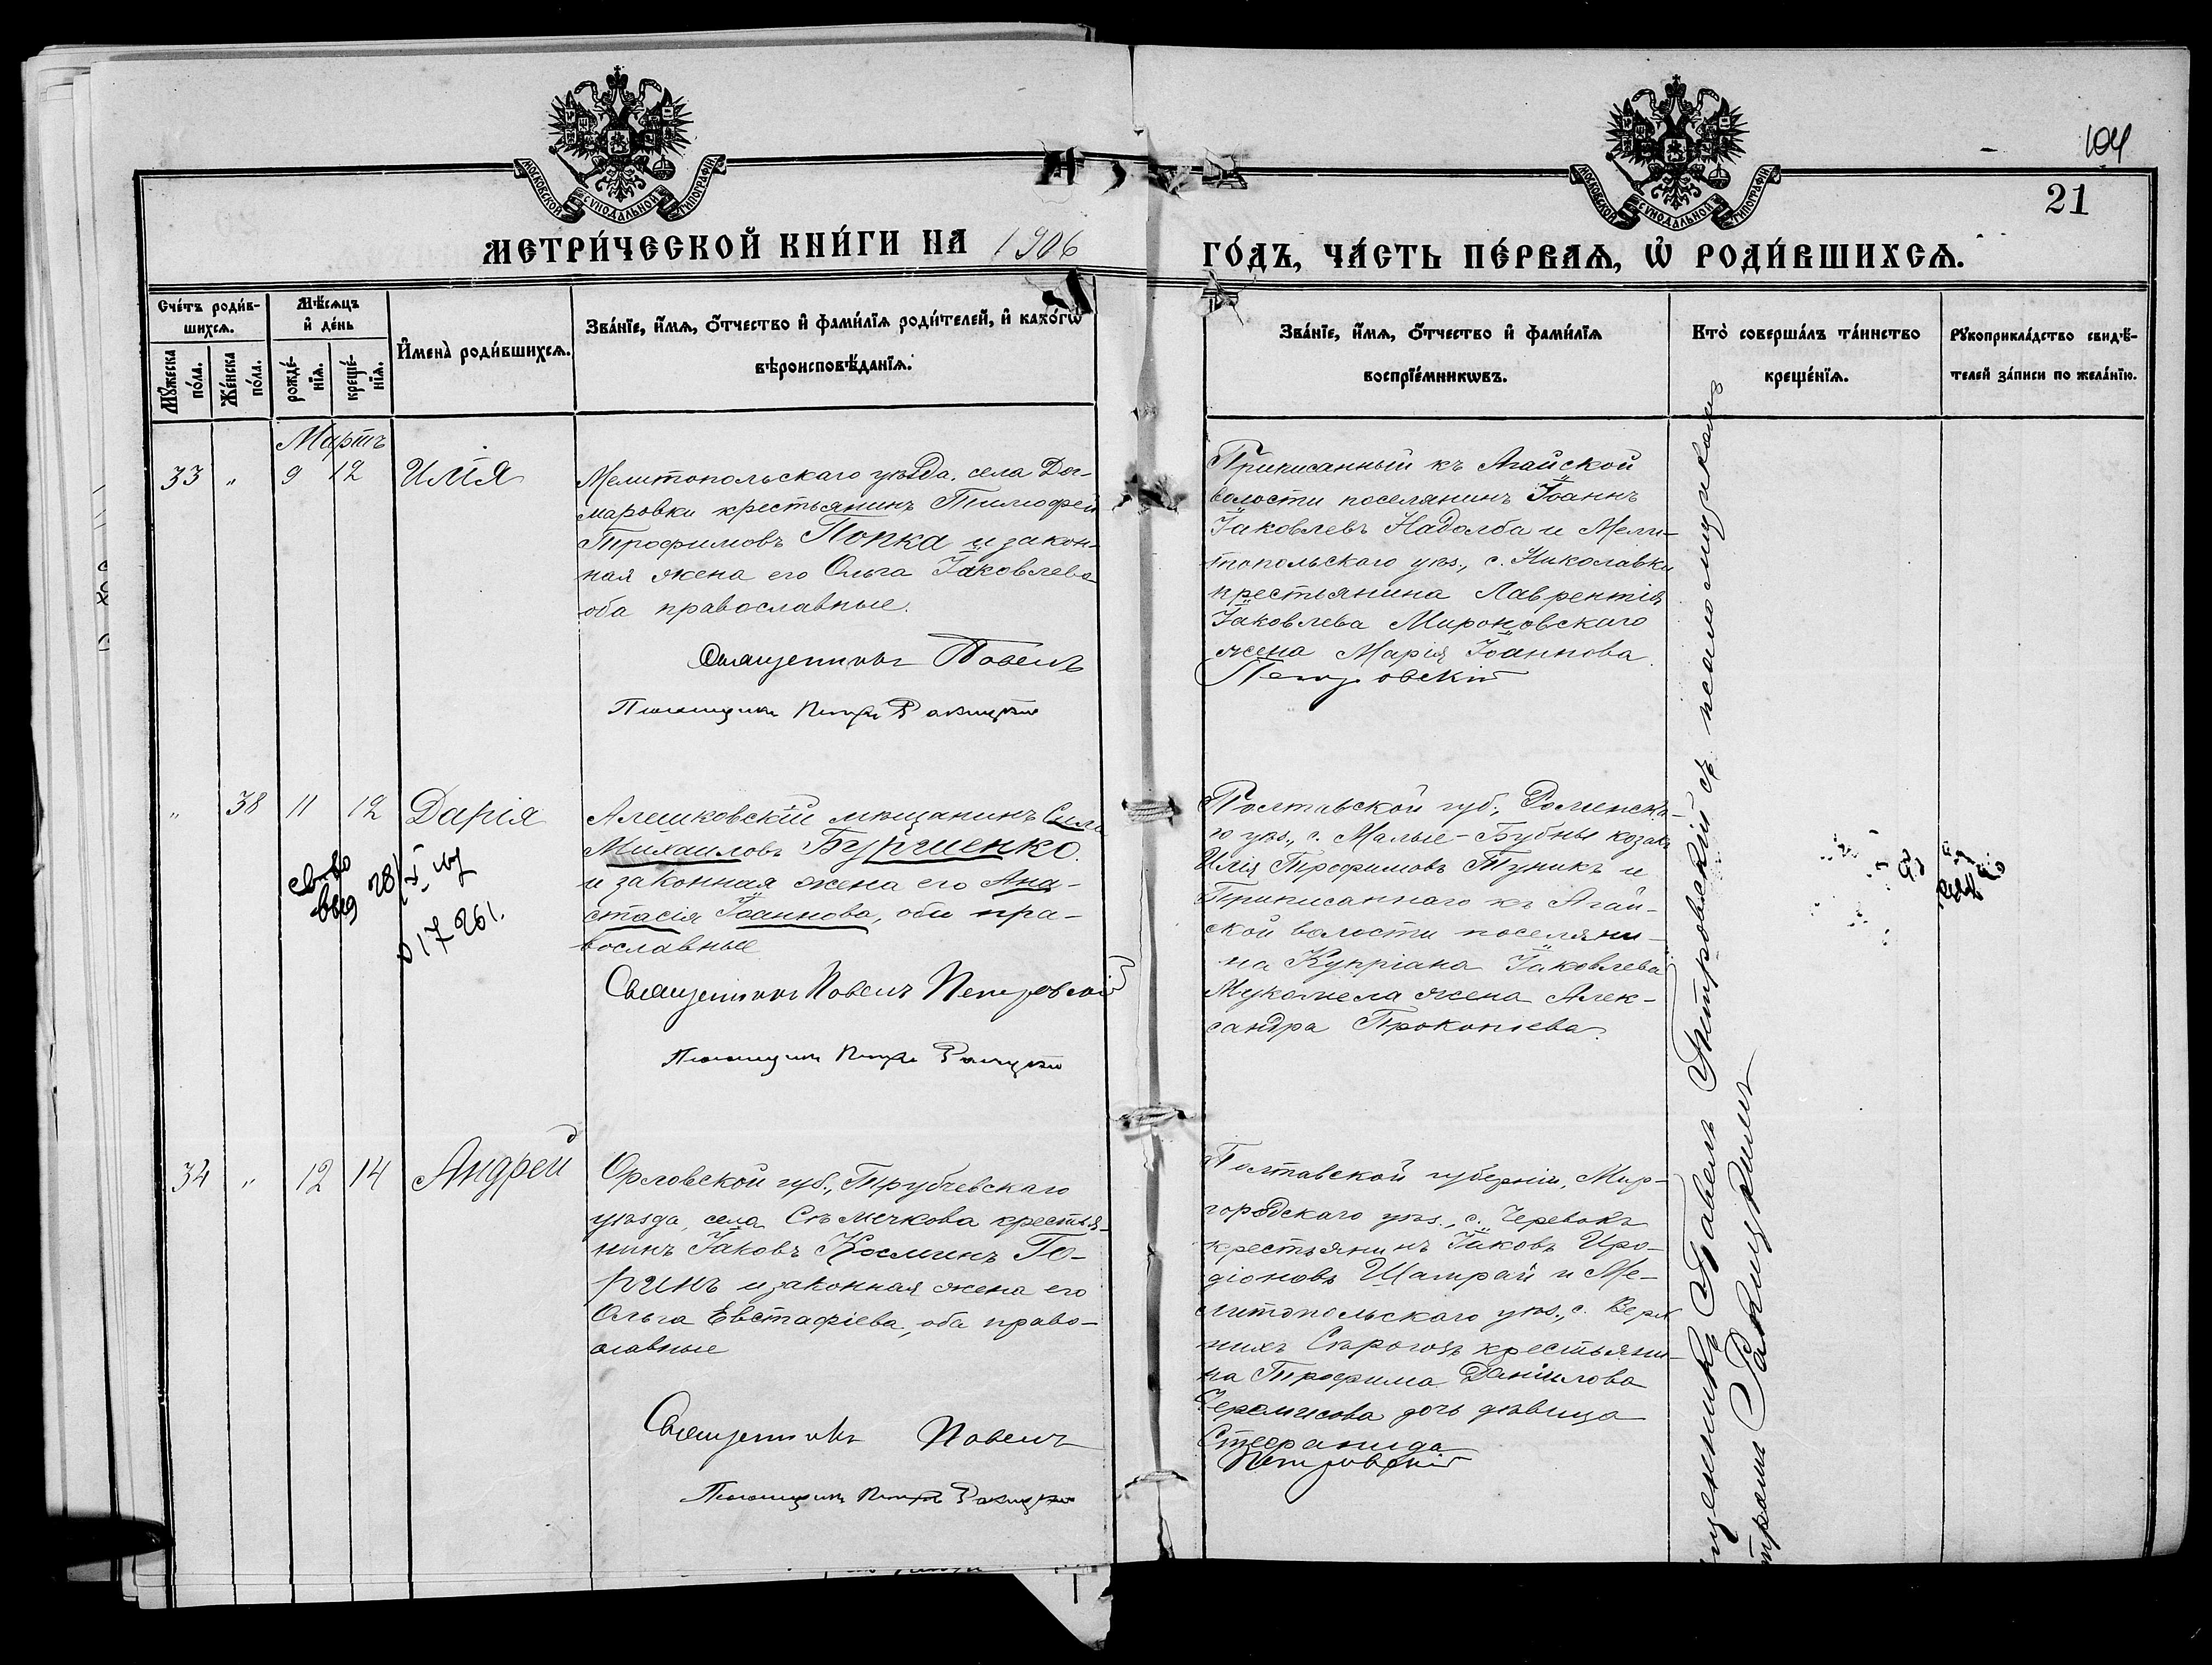 104
21
МОСКОВСКОЙ СѴНОДАЛЬНОЙ ТИПОГРАФІИ
МОСКОВСКОЙ СѴНОДАЛЬНОЙ ТИПОГРАФІИ
МЕТРИ́ЧЕСКОЙ КНИ́ГИ НА 1906 ГО́ДЪ, ЧА́СТЬ ПЕ́РВАѦ, Ѡ҆ РОДИ́ВШИХСѦ.
Сче́тъ роди́в-
шихсѧ.
Мꙋ́жеска по́ла.
Же́нска по́ла.
Мѣ́сѧцъ
и҆ де́нь
рожде́-
нїѧ.
креще́-
нїѧ.
И҆мена̀ роди́вшихсѧ.
Зва́нїе, и҆́мѧ, ѻ҆́тчество и҆ фами́лїѧ роди́телей, и҆ како́гѡ
вѣроисповѣ́данїѧ.
Зва́нїе, и҆́мѧ, ѻ҆́тчество и҆ фами́лїѧ
воспрїе́мникѡвъ.
Кто̀ соверша́лъ та́инство
креще́нїѧ.
Рꙋкоприкла́дство свидѣ́-
телей за́писи по жела́нїю.
Мартъ
33 " 9 12 Илія
Мелитопольскаго уѣзда, села Дог-
маровки крестьянинъ Тимофей
Трофимовъ Попка и закон-
ная жена его Ольга Іаковлева
оба православные.
Священникъ Павелъ
Псаломщикъ Петръ Ракицкій
Приписанный къ Агайской
волости поселянинъ Іоаннъ
Іаковлевъ Надолба и Мели-
топольскаго уѣз., с. Николавки
крестьянина Лаврентія
Іаковлева Мироновскаго
жена Марія Іоаннова.
Петровскій
" 38 11 12 Дарія
28/I
017261.
Алешковскій мѣщанинъ Сила
Михаиловъ Бурченко
и законная жена его Ана-
стасія Іоаннова, оба пра-
вославные
Священникъ Павелъ Петровскій
Псаломщикъ Петръ Ракицкій
Полтавской губ., Роменска-
го уѣз., с. Малые-Бубны козакъ
Илія Трофимовъ Туникъ и
Приписаннаго къ Агай-
ской волости поселяни-
на Купріана Іаковлева
жена Алек-
сандра Прокопіева.
34 " 12 14 Андрей
Орловской губ., Трубчевскаго
уѣзда, села Сѣмечкова крестья-
нинъ Іаковъ Косминъ Го-
ринъ и законная жена его
Ольга Евстафіева, оба право-
славные
Священникъ Павелъ
Псаломщикъ Петръ Ракицкій
Полтавской губерніи, Мир-
городскаго уѣз., с. Черевокъ
крестьянинъ Іаковъ Иро-
діоновъ Шамрай и Ме-
литопольскаго уѣз., с. Верх
нихъ Сѣрогозъ крестьяни-
на Трофима Даніилова
дочь дѣвица
Стефанида
Петровскій
щенникъ Павелъ Петровскій съ псаломщикомъ
Петромъ Ракицкимъ